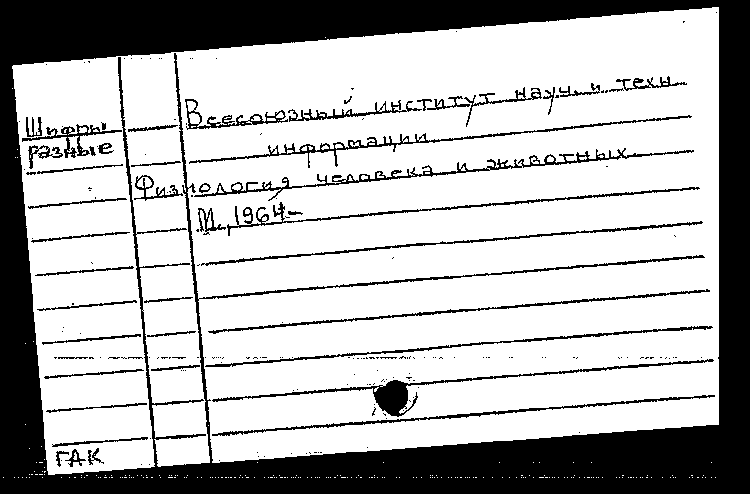 Всесоюзный институт науч. и техн
Шифры
разные
информации
Физиология человека и животных
М., 1964-
ГАК